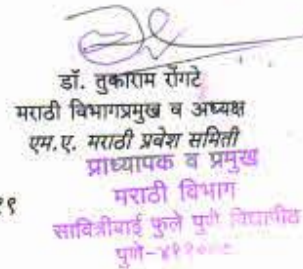 डॉ. तुकाराम रोंगटे
मराठी विभागप्रमुख व अध्यक्ष
एम.ए. मराठी प्रवेश समिती
प्राध्यापक व प्रमुख
मराठी विभाग
१९
सावित्रीबाई फुले पुणे विद्यापीठ
पुणे-४११००७